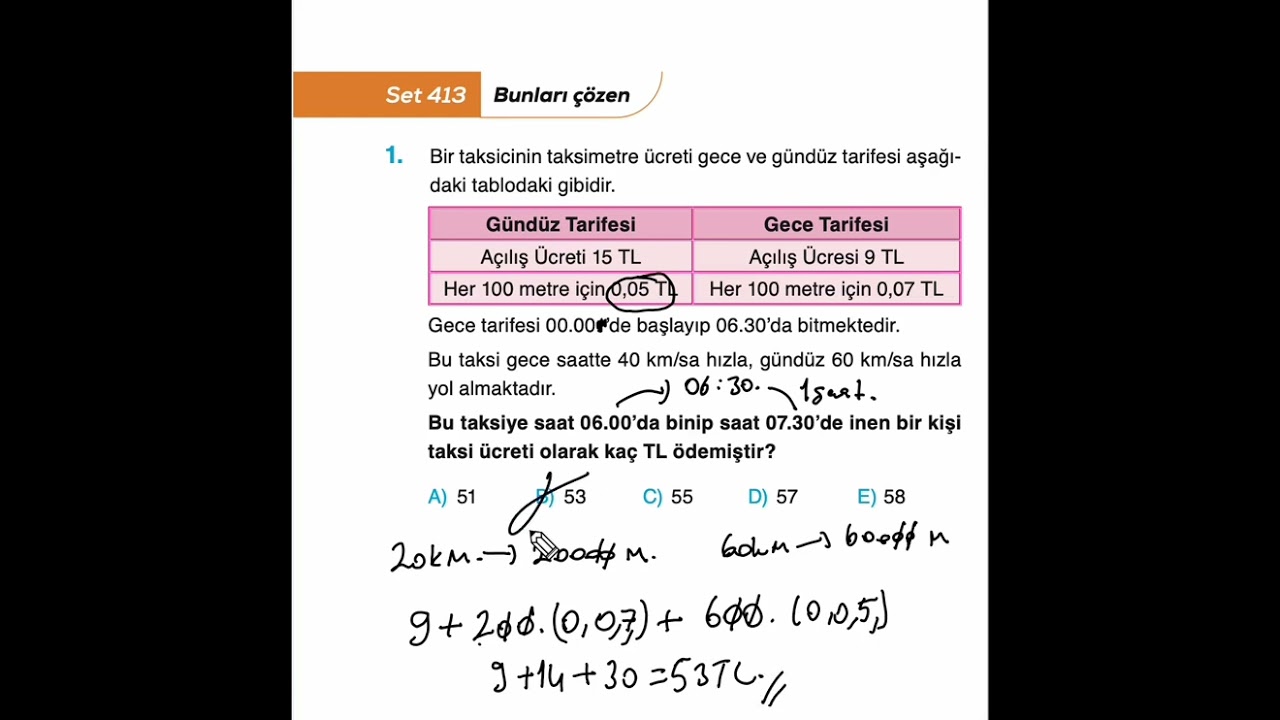 Set 413 Bunları çözen
1. Bir taksicinin taksimetre ücreti gece ve gündüz tarifesi aşağı-
daki tablodaki gibidir.
Gündüz Tarifesi Gece Tarifesi
Açılış Ücreti 15 TL Açılış Ücresi 9 TL
Her 100 metre için 0,05 TL Her 100 metre için 0,07 TL
Gece tarifesi 00.00'de başlayıp 06.30'da bitmektedir.
Bu taksi gece saatte 40 km/sa hızla, gündüz 60 km/sa hızla
yol almaktadır.
06:30. 1 saat.
Bu taksiye saat 06.00'da binip saat 07.30'de inen bir kişi
taksi ücreti olarak kaç TL ödemiştir?
A) 51 B) 53 C) 55 D) 57 E) 58
20km. → 20000 m. 60km → 60000 m
9 + 200.(0,07) + 600.(0,05)
9 + 14 + 30 = 53 TL.